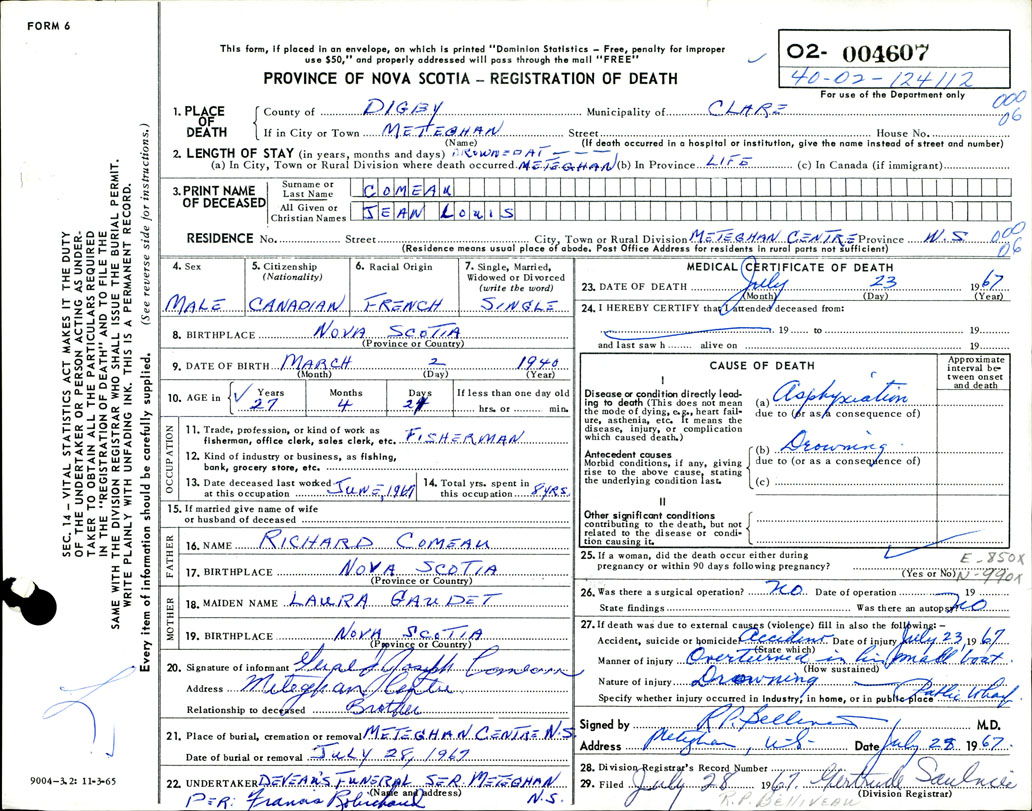 FORM 6
This form, if placed in an envelope, on which is printed "Dominion Statistics – Free, penalty for improper
use $50," and properly addressed will pass through the mail "FREE"
PROVINCE OF NOVA SCOTIA – REGISTRATION OF DEATH
02- 004607
40-02-124112
For use of the Department only
000
06
1. PLACE OF DEATH
County of DIGBY Municipality of CLARE
If in City or Town METEGHAN Street House No.
(Name) (If death occurred in a hospital or institution, give the name instead of street and number)
2. LENGTH OF STAY (in years, months and days) DROWNED AT
(a) In City, Town or Rural Division where death occurred METEGHAN (b) In Province LIFE (c) In Canada (if immigrant)
3. PRINT NAME OF DECEASED
Surname or Last Name COMEAU
All Given or Christian Names JEAN LOUIS
RESIDENCE No. Street City, Town or Rural Division METEGHAN CENTRE Province N.S
000
06
(Residence means usual place of abode. Post Office Address for residents in rural parts not sufficient)
4. Sex MALE
5. Citizenship (Nationality) CANADIAN
6. Racial Origin FRENCH
7. Single, Married, Widowed or Divorced (write the word) SINGLE
8. BIRTHPLACE NOVA SCOTIA
(Province or Country)
9. DATE OF BIRTH MARCH 2 1940
(Month) (Day) (Year)
10. AGE in Years 27 Months 4 Days 21 If less than one day old hrs. or min.
OCCUPATION
11. Trade, profession, or kind of work as
fisherman, office clerk, sales clerk, etc. FISHERMAN
12. Kind of industry or business, as fishing,
bank, grocery store, etc.
13. Date deceased last worked
at this occupation JUNE, 1967
14. Total yrs. spent in
this occupation 8 YRS.
15. If married give name of wife
or husband of deceased
FATHER
16. NAME RICHARD COMEAU
17. BIRTHPLACE NOVA SCOTIA
(Province or Country)
MOTHER
18. MAIDEN NAME LAURA GAUDET
19. BIRTHPLACE NOVA SCOTIA
(Province or Country)
20. Signature of informant Joseph Comeau
Address Meteghan Centre
Relationship to deceased Brother
21. Place of burial, cremation or removal METEGHAN CENTRE N.S
Date of burial or removal JULY 28, 1967
22. UNDERTAKER DEVEAU'S FUNERAL SER. METEGHAN
(Name and address) N.S.
PER: Francis Robichaud
MEDICAL CERTIFICATE OF DEATH
23. DATE OF DEATH July 23 1967
(Month) (Day) (Year)
24. I HEREBY CERTIFY that I attended deceased from:
19 to 19
and last saw h alive on 19
CAUSE OF DEATH
Approximate interval between onset and death
I
Disease or condition directly leading to death (This does not mean the mode of dying, e.g., heart failure, asthenia, etc. It means the disease, injury, or complication which caused death.)
(a) Asphyxiation
due to (or as a consequence of)
Antecedent causes
Morbid conditions, if any, giving rise to the above cause, stating the underlying condition last.
(b) Drowning
due to (or as a consequence of)
(c)
II
Other significant conditions
contributing to the death, but not related to the disease or condition causing it.
25. If a woman, did the death occur either during
pregnancy or within 90 days following pregnancy?
(Yes or No)
E-850X
N-990X
26. Was there a surgical operation? NO. Date of operation 19
State findings Was there an autopsy NO
27. If death was due to external causes (violence) fill in also the following:–
Accident, suicide or homicide Accident Date of injury July 23, 1967
(State which)
Manner of injury Overturned in his small boat
(How sustained)
Nature of injury Drowning
Specify whether injury occurred in industry, in home, or in public place Public Wharf
Signed by R.P. Belliveau M.D.
Address Meteghan, N.S Date July 28 1967.
28. Division Registrar's Record Number
29. Filed July 28 1967 Gertrude Saulnier
(Division Registrar)
R.P. BELLIVEAU
SEC. 14 – VITAL STATISTICS ACT MAKES IT THE DUTY
OF THE UNDERTAKER OR PERSON ACTING AS UNDERTAKER TO OBTAIN ALL THE PARTICULARS REQUIRED
IN THE "REGISTRATION OF DEATH" AND TO FILE THE
SAME WITH THE DIVISION REGISTRAR WHO SHALL ISSUE THE BURIAL PERMIT.
WRITE PLAINLY WITH UNFADING INK. THIS IS A PERMANENT RECORD.
Every item of information should be carefully supplied. (See reverse side for instructions.)
9004-3.2: 11-3-65